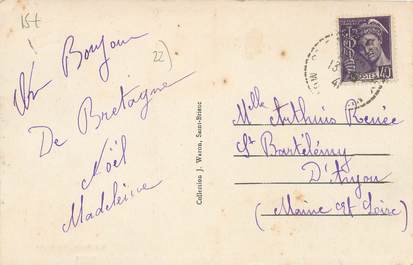 15t
22)
Un Bonjour
De Bretagne
Noël
Madeleine
Collection J. Waron, Saint-Brieuc
Mlle Arthuis Renée
St Bartélémy
D'Anjou
(Maine et Loire)
POSTES
40
13